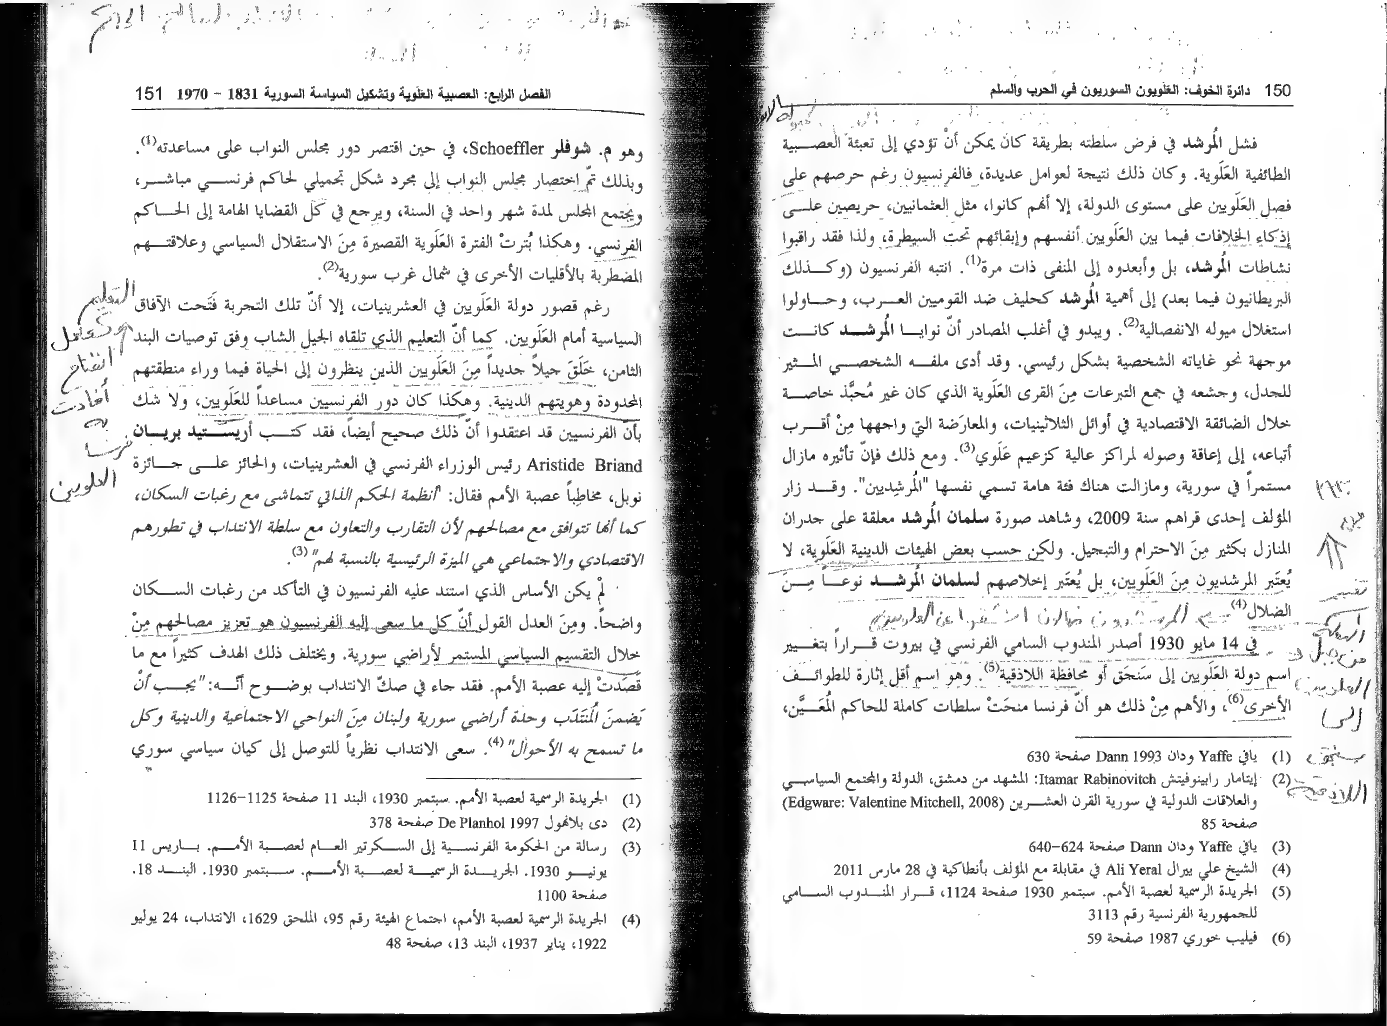 150 دائرة الخوف: العَلَويون السوريون في الحرب والسلم
فشل المُرشد في فرض سلطته بطريقة كان يمكن أنْ تؤدي إلى تعبئة العصبية
الطائفية العَلَوية. وكان ذلك نتيجة لعوامل عديدة، فالفرنسيون رغم حرصهم على
فصل العَلَويين على مستوى الدولة، إلا أنهم كانوا، مثل العثمانيين، حريصين على
إذكاء الخلافات فيما بين العَلَويين أنفسهم وإبقائهم تحت السيطرة، ولذا فقد راقبوا
نشاطات المُرشد، بل وأبعدوه إلى المنفى ذات مرة(1). انتبه الفرنسيون (وكذلك
البريطانيون فيما بعد) إلى أهمية المُرشد كحليف ضد القوميين العرب، وحاولوا
استغلال ميوله الانفصالية(2). ويبدو في أغلب المصادر أنّ نوايا المُرشد كانت
موجهة نحو غاياته الشخصية بشكل رئيسي. وقد أدى ملفه الشخصي المثير
للجدل، وجشعه في جمع التبرعات مِنَ القرى العَلَوية الذي كان غير مُحبَّذ خاصة
خلال الضائقة الاقتصادية في أوائل الثلاثينيات، والمعارَضة التي واجهها مِنْ أقرب
أتباعه، إلى إعاقة وصوله لمراكز عالية كزعيم عَلَوي(3). ومع ذلك فإنّ تأثيره مازال
مستمراً في سورية، ومازالت هناك فئة هامة تسمي نفسها "المُرشِديين". وقد زار
المؤلف إحدى قراهم سنة 2009، وشاهد صورة سلمان المُرشد معلقة على جدران
المنازل بكثير مِنَ الاحترام والتبجيل. ولكن حسب بعض الهيئات الدينية العَلَوية، لا
يُعتَبر المرشديون مِنَ العَلَويين، بل يُعتَبر إخلاصهم لسلمان المُرشد نوعاً مِنَ
الضلال(4).
في 14 مايو 1930 أصدر المندوب السامي الفرنسي في بيروت قراراً بتغيير
اسم دولة العَلَويين إلى سنجَق أو محافظة اللاذقية(5). وهو اسم أقل إثارة للطوائف
الأخرى(6)، والأهم مِنْ ذلك هو أنّ فرنسا منحَتْ سلطات كاملة للحاكم المُعَيَّن،
(1) يافي Yaffe ودان Dann 1993 صفحة 630
(2) إيتامار رابينوفيتش Itamar Rabinovitch: المشهد من دمشق، الدولة والمجتمع السياسي
والعلاقات الدولية في سورية القرن العشرين (Edgware: Valentine Mitchell, 2008)
صفحة 85
(3) يافي Yaffe ودان Dann صفحة 624–640
(4) الشيخ علي ييرال Ali Yeral في مقابلة مع المؤلف بأنطاكية في 28 مارس 2011
(5) الجريدة الرسمية لعصبة الأمم. سبتمبر 1930 صفحة 1124، قرار المندوب السامي
للجمهورية الفرنسية رقم 3113
(6) فيليب خوري 1987 صفحة 59
تفسير
العلويين
إلى
سنجق
اللاذقية
الفصل الرابع: العصبية العَلَوية وتشكيل السياسة السورية 1831 – 1970 151
وهو م. شوفلر Schoeffler، في حين اقتصر دور مجلس النواب على مساعدته(1).
وبذلك تمّ اختصار مجلس النواب إلى مجرد شكل تجميلي لحاكم فرنسي مباشر،
ويجتمع المجلس لمدة شهر واحد في السنة، ويرجع في كل القضايا الهامة إلى الحاكم
الفرنسي. وهكذا بُترتْ الفترة العَلَوية القصيرة مِنَ الاستقلال السياسي وعلاقتهم
المضطربة بالأقليات الأخرى في شمال غرب سورية(2).
رغم قصور دولة العَلَويين في العشرينيات، إلا أنّ تلك التجربة فَتَحت الآفاق
السياسية أمام العَلَويين. كما أنّ التعليم الذي تلقاه الجيل الشاب وفق توصيات البند
الثامن، خَلَقَ جيلاً جديداً مِنَ العَلَويين الذين ينظرون إلى الحياة فيما وراء منطقتهم
المحدودة وهويتهم الدينية. وهكذا كان دور الفرنسيين مساعداً للعَلَويين، ولا شك
بأنّ الفرنسيين قد اعتقدوا أنّ ذلك صحيح أيضاً، فقد كتب أريستيد بريان
Aristide Briand رئيس الوزراء الفرنسي في العشرينيات، والحائز على جائزة
نوبل، مخاطِباً عصبة الأمم فقال: "أنظمة الحكم الذاتي تتماشى مع رغبات السكان،
كما أنها تتوافق مع مصالحهم لأن التقارب والتعاون مع سلطة الانتداب في تطورهم
الاقتصادي والاجتماعي هي الميزة الرئيسية بالنسبة لهم"(3).
لمْ يكن الأساس الذي استند عليه الفرنسيون في التأكد من رغبات السكان
واضحاً. ومِنَ العدل القول أنّ كل ما سعى إليه الفرنسيون هو تعزيز مصالحهم مِنْ
خلال التقسيم السياسي المستمر لأراضي سورية. ويختلف ذلك الهدف كثيراً مع ما
قَصَدَتْ إليه عصبة الأمم. فقد جاء في صكّ الانتداب بوضوح أنّه: "يجب أنْ
يَضمنَ المُنتَدَب وحدة أراضي سورية ولبنان مِنَ النواحي الاجتماعية والدينية وكل
ما تسمح به الأحوال"(4). سعى الانتداب نظرياً للتوصل إلى كيان سياسي سوري
(1) الجريدة الرسمية لعصبة الأمم. سبتمبر 1930، البند 11 صفحة 1125–1126
(2) دى بلانهول De Planhol 1997 صفحة 378
(3) رسالة من الحكومة الفرنسية إلى السكرتير العام لعصبة الأمم. باريس 11
يونيو 1930. الجريدة الرسمية لعصبة الأمم. سبتمبر 1930. البند 18.
صفحة 1100
(4) الجريدة الرسمية لعصبة الأمم، اجتماع الهيئة رقم 95، الملحق 1629، الانتداب، 24 يوليو
1922، يناير 1937، البند 13، صفحة 48
التعليم
أفادت
فرنسا
العلويين